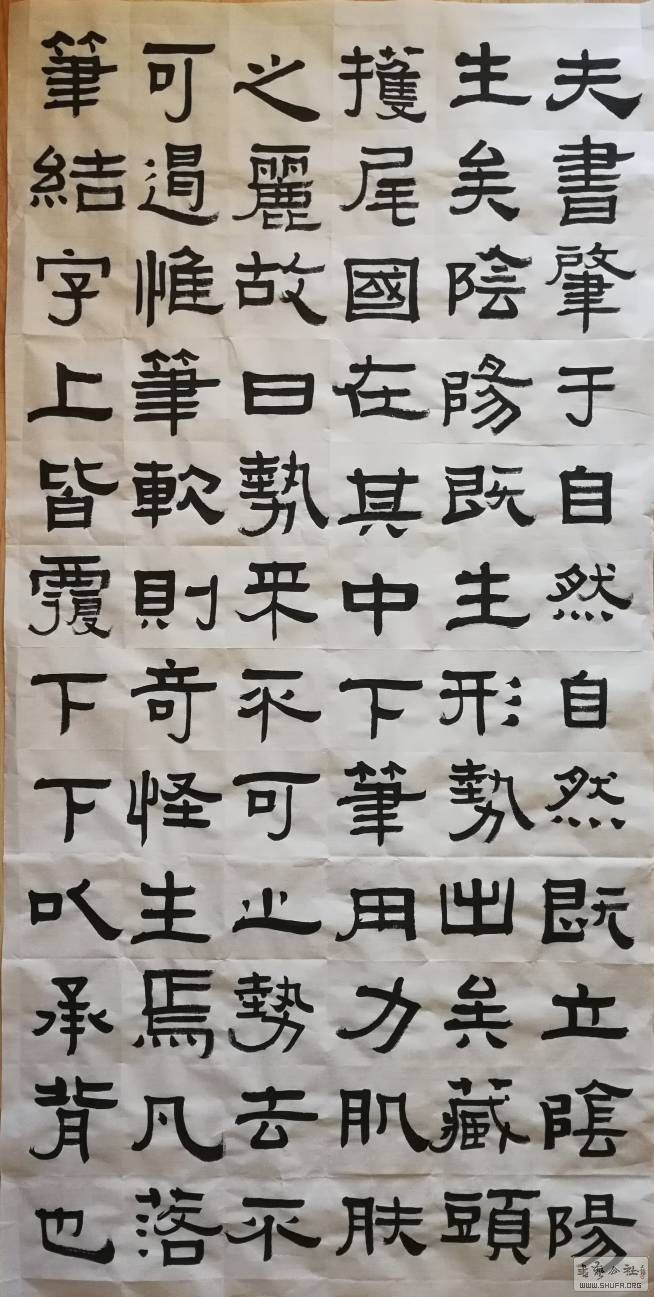 夫書肇于自然自然既立陰陽
生矣陰陽既生形勢出矣藏頭
擭尾國在其中下筆用力肌肤
之麗故曰勢来不可止勢去不
可遏惟筆軟則奇怪生焉凡落
筆結字上皆覆下下以承背也
书艺公社
WWW.SHUFA.ORG